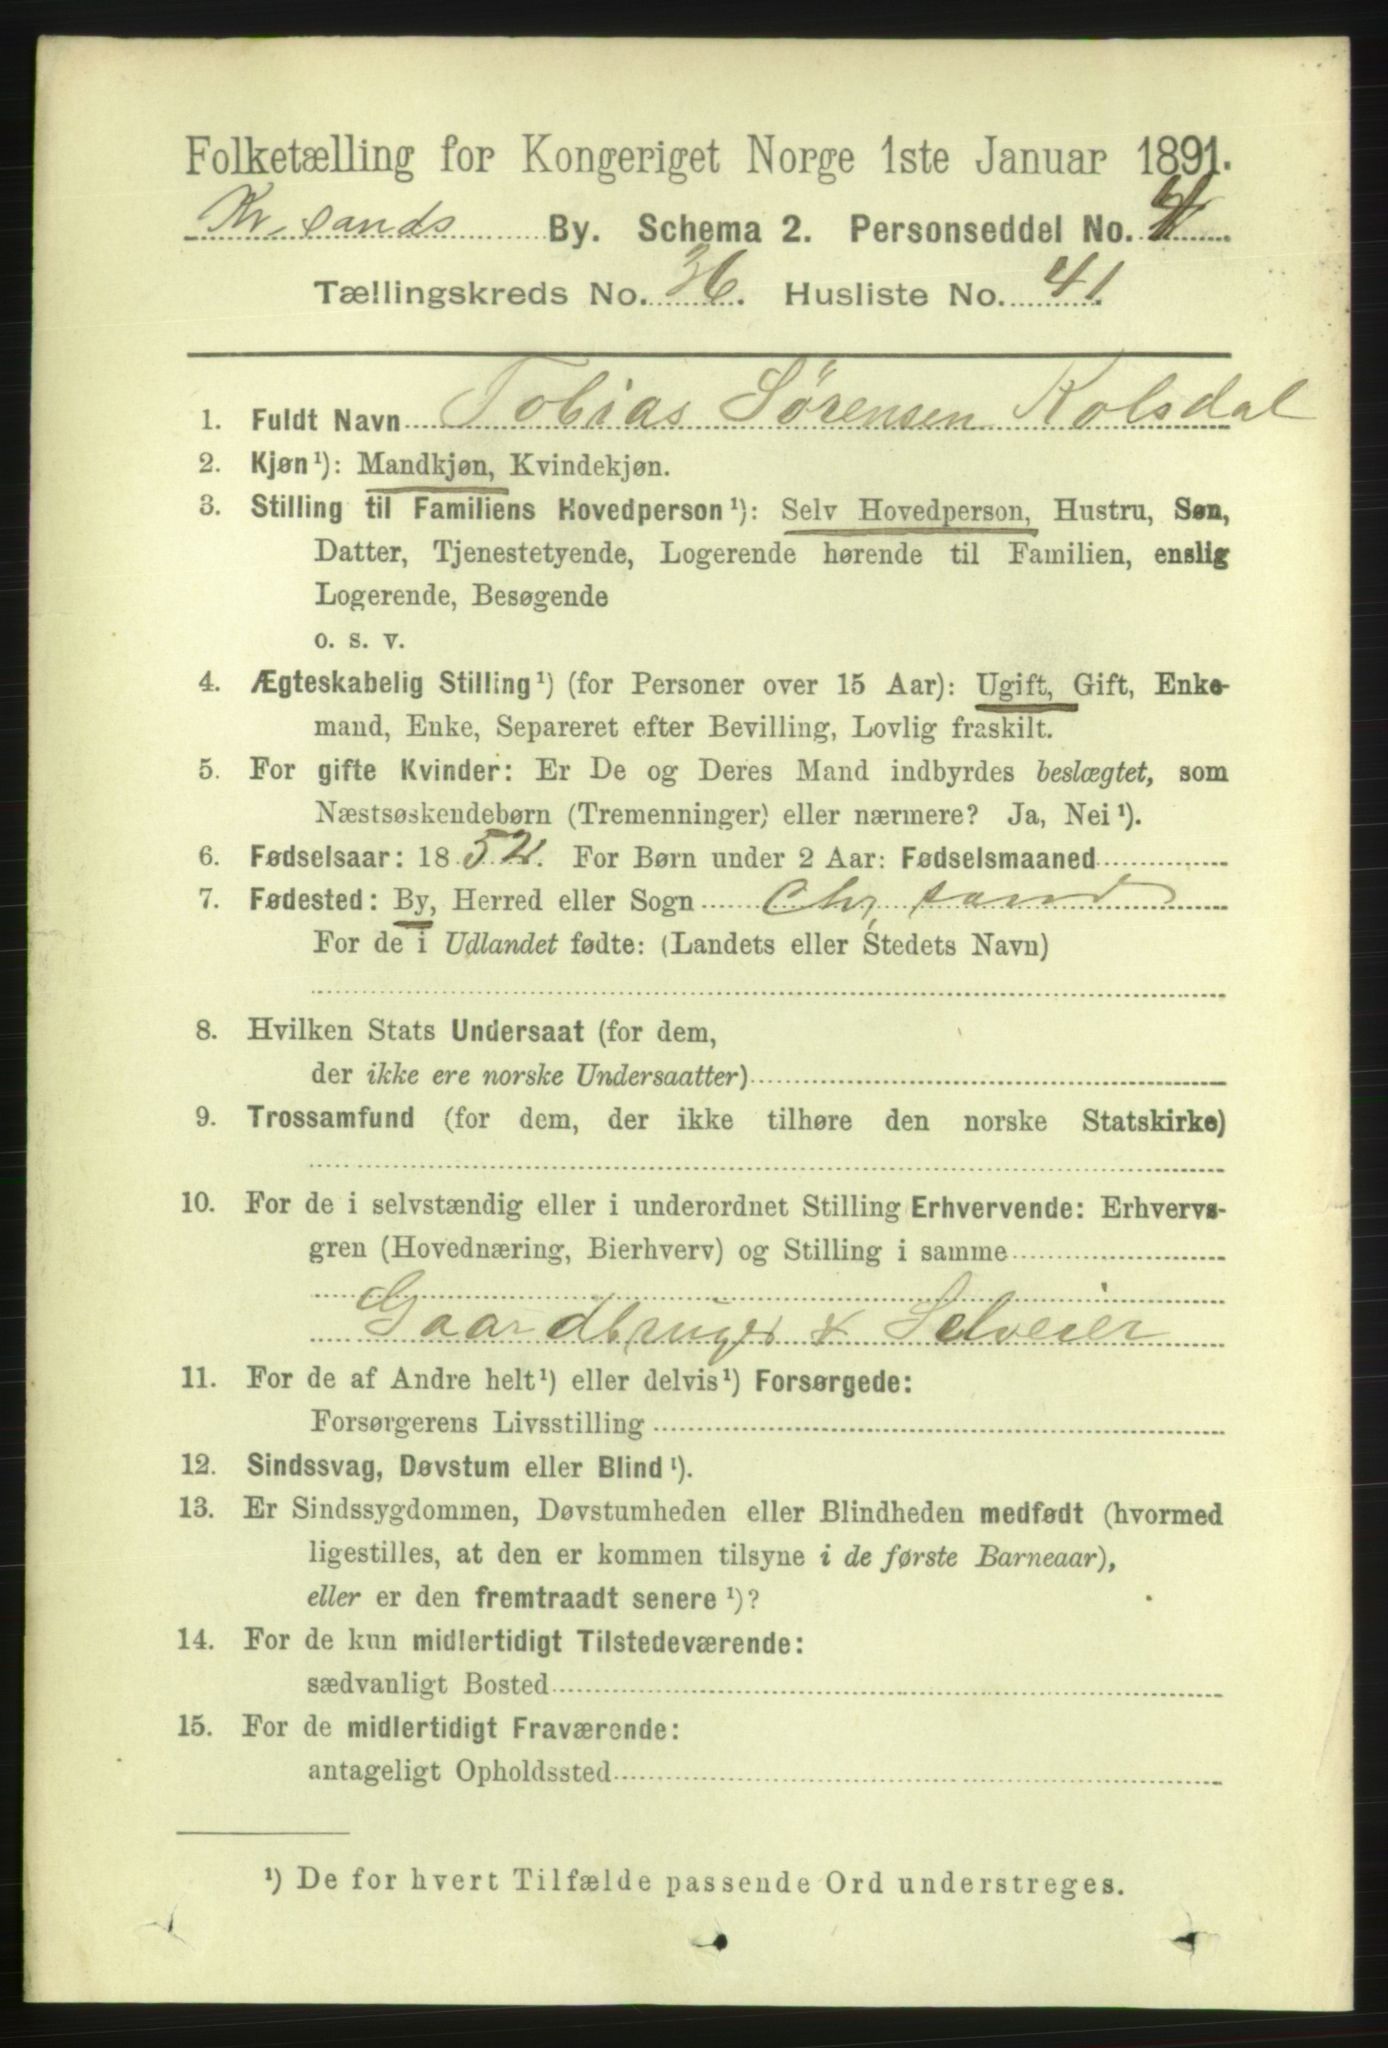 Folketælling for Kongeriget Norge 1ste Januar 1891.
Kr.sands By. Schema 2. Personseddel No.
Tællingskreds No. 36. Husliste No. 41.
1. Fuldt Navn Tobias Sørensen Kolsdal
2. Kjøn¹): Mandkjøn, Kvindekjøn.
3. Stilling til Familiens Hovedperson¹): Selv Hovedperson, Hustru, Søn,
Datter, Tjenestetyende, Logerende hørende til Familien, enslig
Logerende, Besøgende
o. s. v.
4. Ægteskabelig Stilling¹) (for Personer over 15 Aar): Ugift, Gift, Enke-
mand, Enke, Separeret efter Bevilling, Lovlig fraskilt.
5. For gifte Kvinder: Er De og Deres Mand indbyrdes beslægtet, som
Næstsøskendebørn (Tremenninger) eller nærmere? Ja, Nei¹).
6. Fødselsaar: 1852. For Børn under 2 Aar: Fødselsmaaned
7. Fødested: By, Herred eller Sogn Chr,sand
For de i Udlandet fødte: (Landets eller Stedets Navn)
8. Hvilken Stats Undersaat (for dem,
der ikke ere norske Undersaatter)
9. Trossamfund (for dem, der ikke tilhøre den norske Statskirke)
10. For de i selvstændig eller i underordnet Stilling Erhvervende: Erhvervs-
gren (Hovednæring, Bierhverv) og Stilling i samme
Gaardbruger & Selveier
11. For de af Andre helt¹) eller delvis¹) Forsørgede:
Forsørgerens Livsstilling
12. Sindssvag, Døvstum eller Blind¹).
13. Er Sindssygdommen, Døvstumheden eller Blindheden medfødt (hvormed
ligestilles, at den er kommen tilsyne i de første Barneaar),
eller er den fremtraadt senere¹)?
14. For de kun midlertidigt Tilstedeværende:
sædvanligt Bosted
15. For de midlertidigt Fraværende:
antageligt Opholdssted
¹) De for hvert Tilfælde passende Ord understreges.